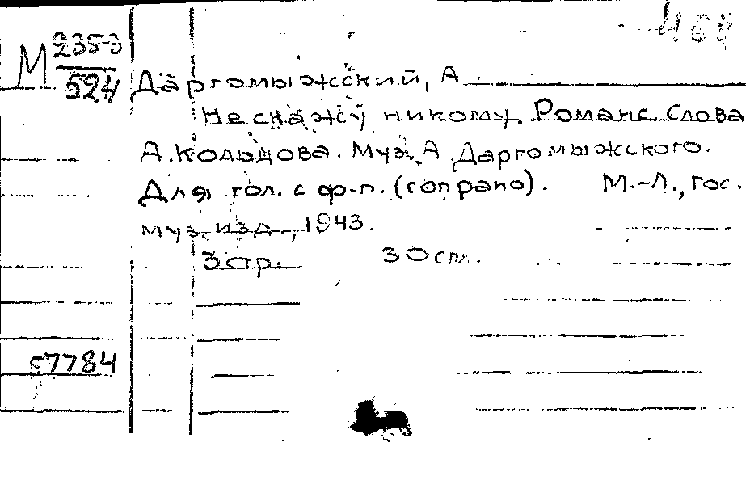 М 235-3
524
Даргомыжский, А
Не скажу никому. Романс. Слова
А. Кольцова. Муз. А. Даргомыжского.
Для гол. с ф-п. (сопрано). М.-Л., Гос.
муз. изд., 1943.
3 стр. 30 см.
57784